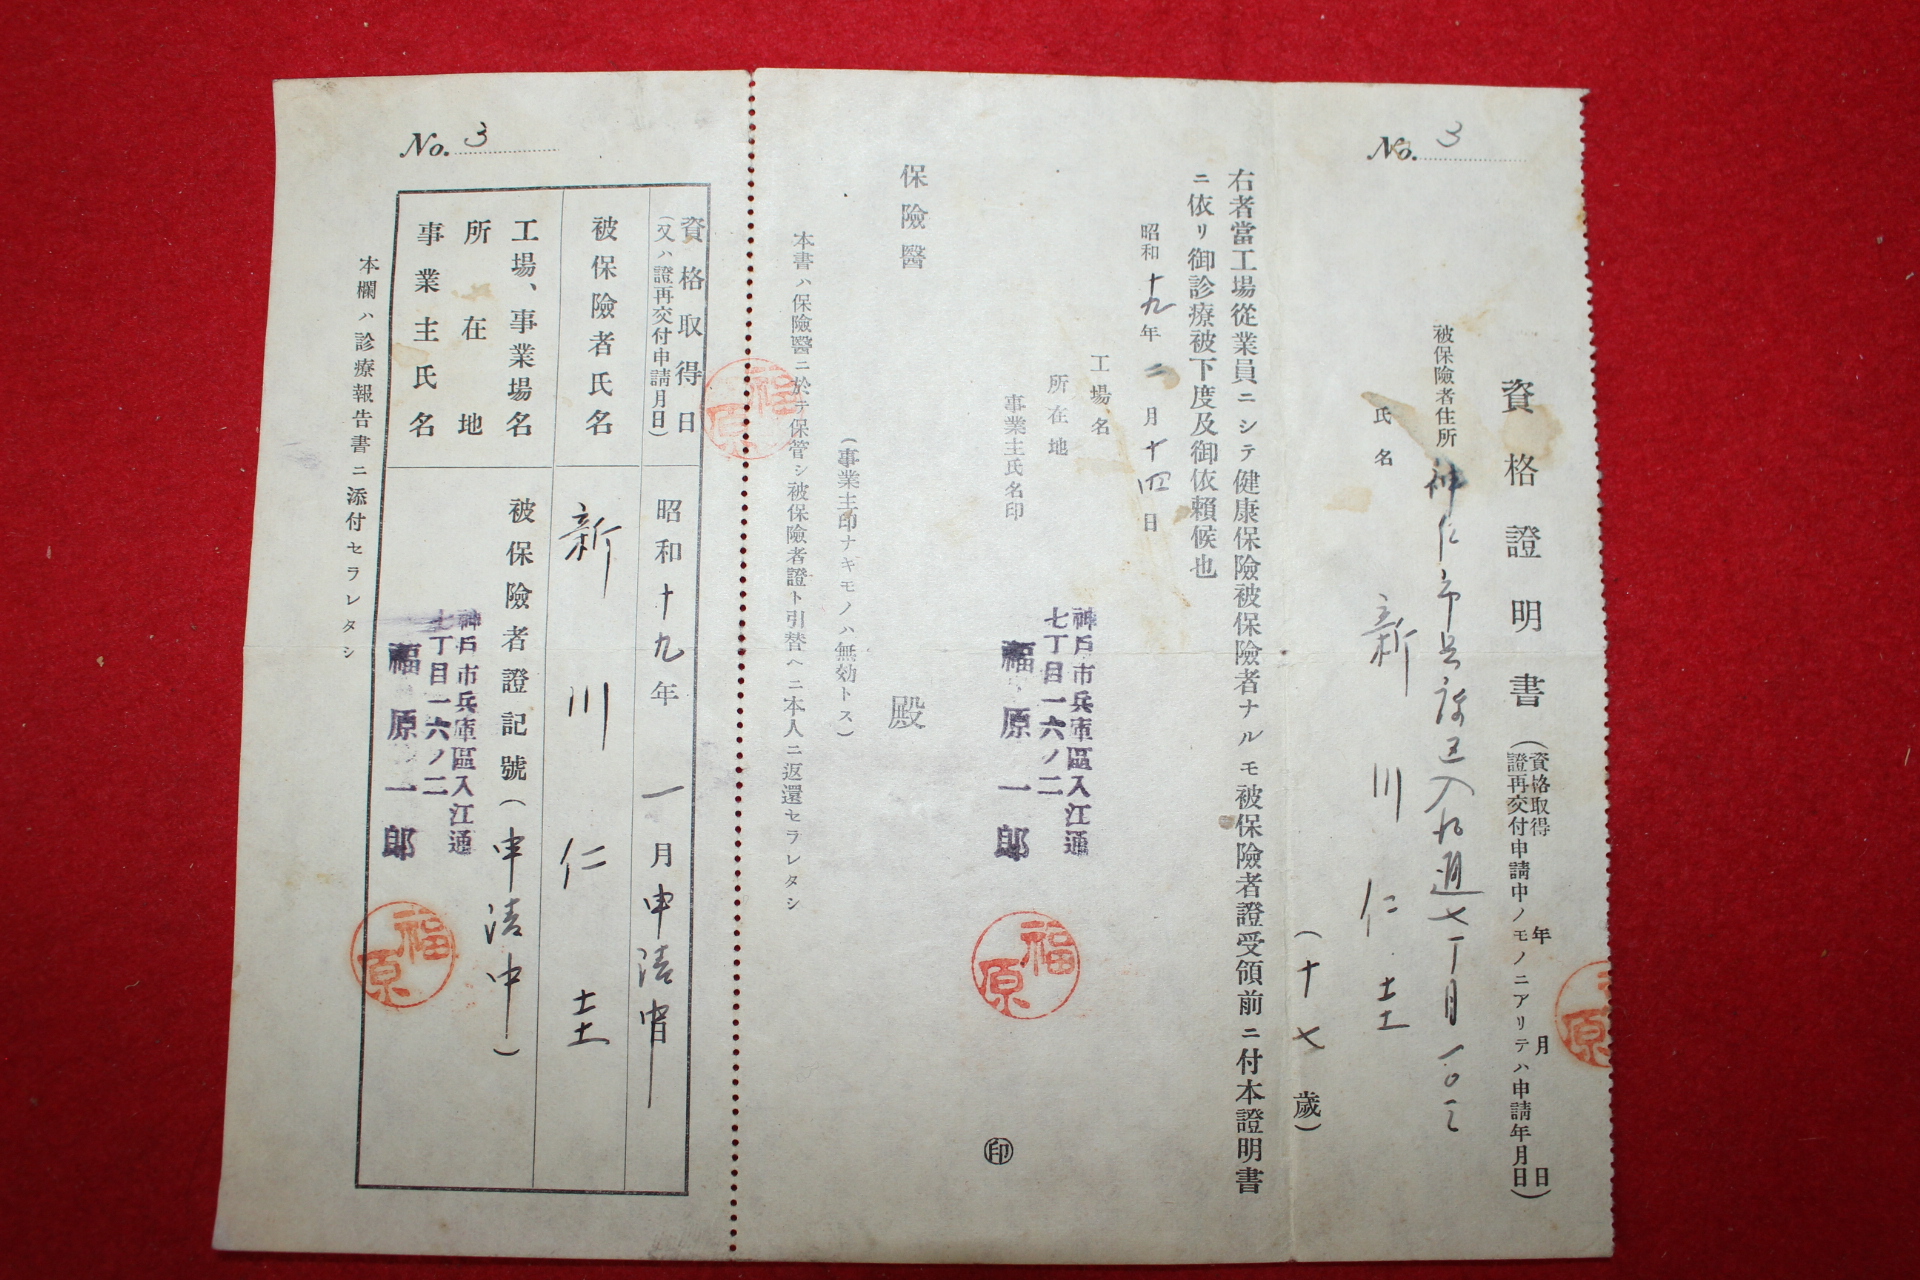 No. 3
資格證明書
(資格取得 年 月 日
證再交付申請中ノモノニアリテハ申請年月日)
被保險者住所 入江通七丁目一〇二
氏名 新川仁圭
(十七歲)
右者當工場從業員ニシテ健康保險被保險者ナルモ被保險者證受領前ニ付本證明書
ニ依リ御診療被下度及御依賴候也
昭和十九年二月十四日
工場名
所在地
神戶市兵庫區入江通
七丁目一六ノ二
事業主氏名印
福原一郎
福原
印
保險醫 殿
(事業主印ナキモノハ無効トス)
本書ハ保險醫ニ於テ保管シ被保險者證ト引替ヘニ本人ニ返還セラレタシ
福原
No. 3
資格取得日
(又ハ證再交付申請月日)
昭和十九年一月申請中
被保險者氏名
新川仁圭
工場、事業場名
所在地
事業主氏名
被保險者證記號(申請中)
神戶市兵庫區入江通
七丁目一六ノ二
福原一郎
福原
本欄ハ診療報告書ニ添付セラレタシ